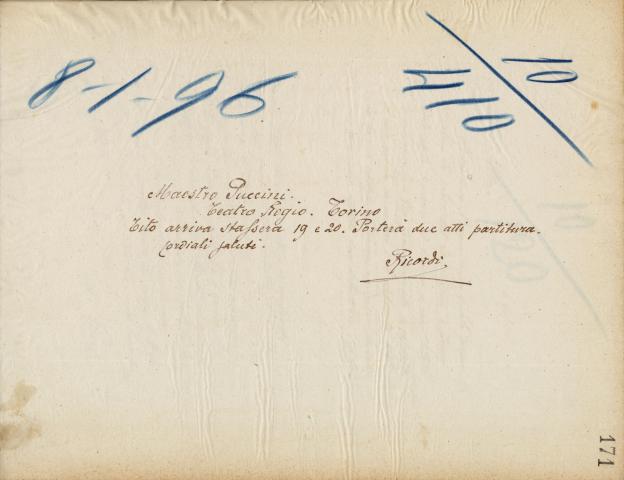 8-1-96
10
410
Maestro Puccini.
Teatro Regio. Torino
Tito arriva stassera 19 e 20. Porterà due atti partitura.
Cordiali saluti.
Ricordi
171